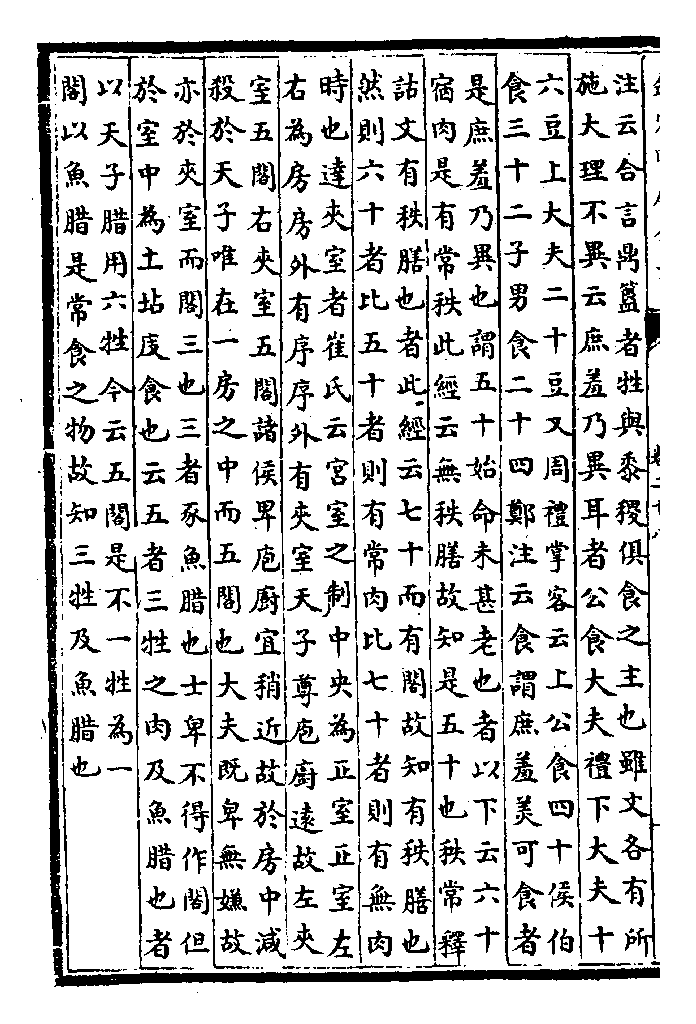 注云合言鼎簋者牲與黍稷俱食之主也雖文各有所
施大理不異云庶羞乃異耳者公食大夫禮下大夫十
六豆上大夫二十豆又周禮掌客云上公食四十侯伯
食三十二子男食二十四鄭注云食謂庶羞美可食者
是庶羞乃異也謂五十始命未甚老也者以下云六十
宿肉是有常秩此經云無秩膳故知是五十也秩常釋
詁文有秩膳也者此經云七十而有閣故知有秩膳也
然則六十者比五十者則有常肉比七十者則有無肉
時也達夾室者崔氏云宮室之制中央為正室正室左
右為房房外有序序外有夾室天子尊庖廚遠故左夾
室五閣右夾室五閣諸侯卑庖廚宜稍近故於房中減
殺於天子唯在一房之中而五閣也大夫既卑無嫌故
亦於夾室而閣三也三者豕魚腊也士卑不得作閣但
於室中為土坫庋食也云五者三牲之肉及魚腊也者
以天子腊用六牲今云五閣是不一牲為一
閣以魚腊是常食之物故知三牲及魚腊也